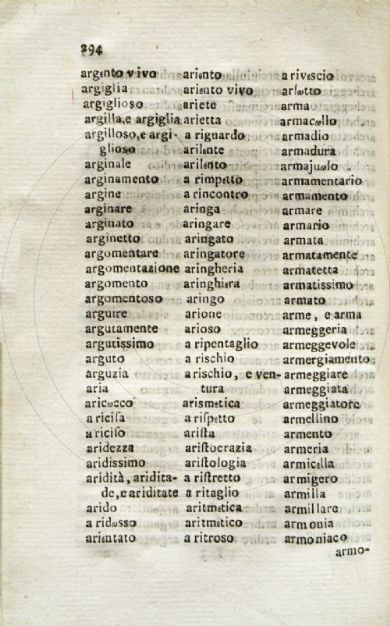 294
argεnto vivo
argiglia
argiglioso
argilla, e argiglia
argilloso, e argi-
glioso
arginale
arginamento
argine
arginare
arginato
arginetto
argomentare
argomentazione
argomento
argomentoso
arguire
argutamente
argutissimo
arguto
arguzia
aria
aricωcco
a riciſa
a riciſo
aridezza
aridissimo
aridità, aridita-
de, e ariditate
arido
a ridωsso
ariεntato
ariεnto
ariεnto vivo
ariete
arietta
a riguardo
arilεnte
arilεnto
a rimpεtto
a rincontro
aringa
aringare
aringato
aringatore
aringheria
aringhiεra
aringo
arione
arioso
a ripentaglio
a rischio
a rischio, e ven-
tura
arismεtica
a riſpεtto
ariſta
ariſtocrazia
ariſtologia
a riſtretto
a ritaglio
aritmεtica
aritmεtico
a ritroso
a rivεscio
arlωtto
arma
armacωllo
armadio
armadura
armajuωlo
armamentario
armamento
armare
armario
armata
armatamente
armatetta
armatissimo
armato
arme, e arma
armeggeria
armeggevole
armergiamento
armeggiare
armeggiata
armeggiatore
armellino
armento
armeria
armicεlla
armigero
armilla
armillare
armonia
armoniaco
armo-